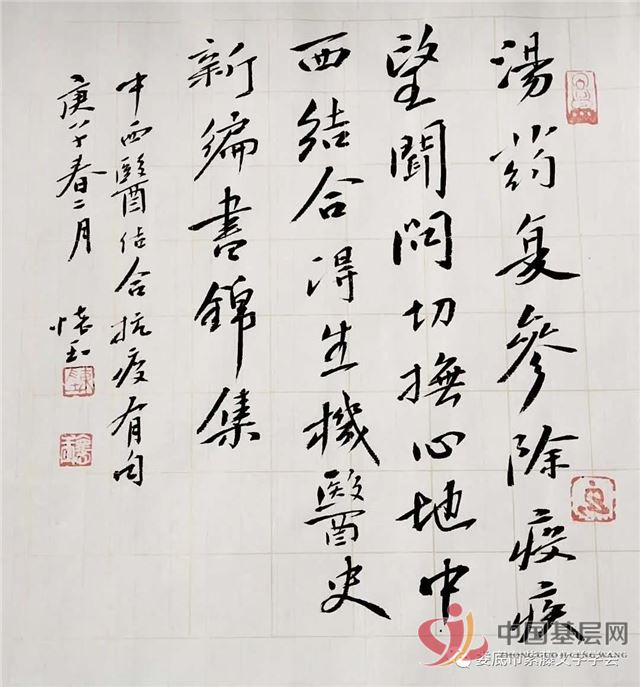 湯药复參除疫疾
望聞問切撫心地中
西結合得生機醫史
新編書錦集
中西醫結合抗疫有句
庚子春二月
懷玉
中国基层网
ZHONG GUO JI CENG WANG
娄底市紫藤文学学会